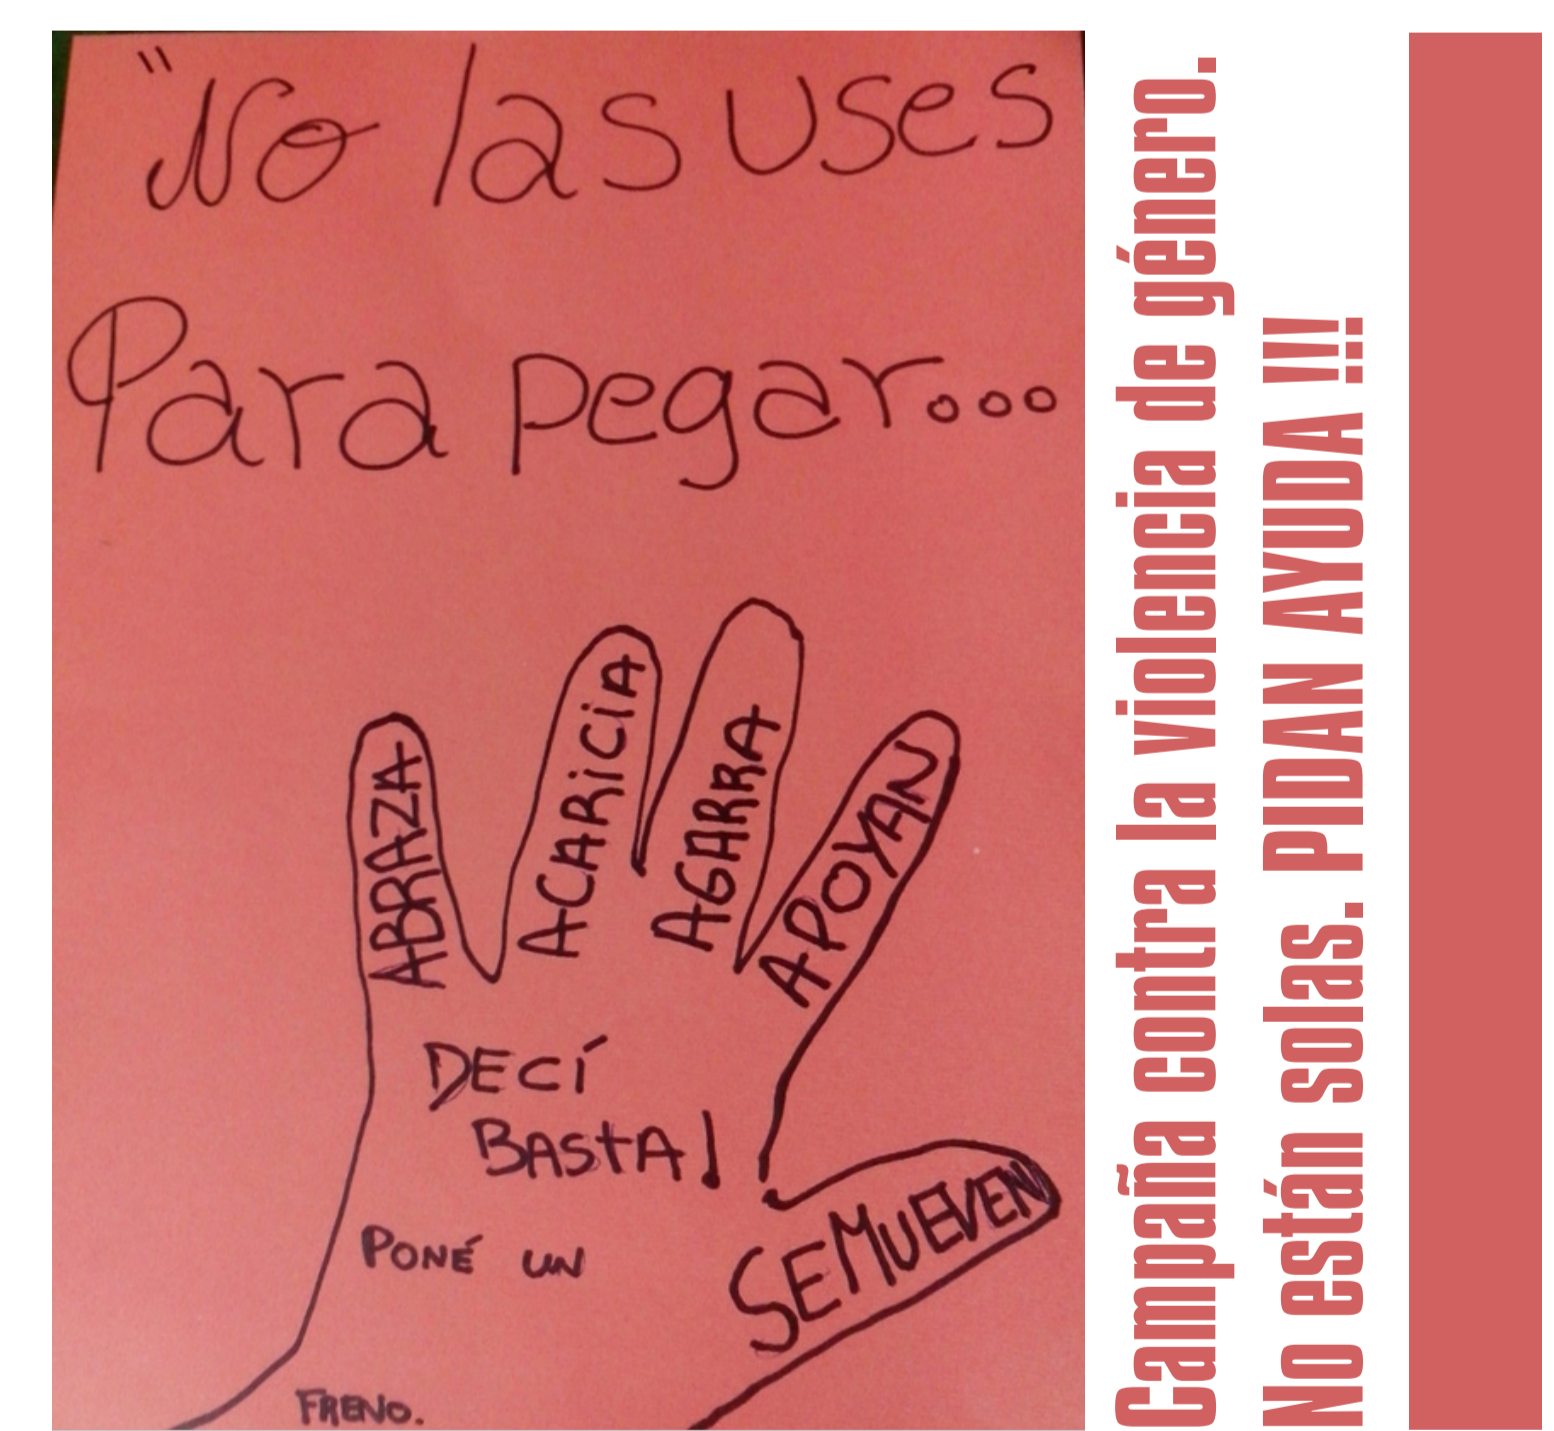 "No las uses
Para pegar...
ABRAZA
ACARiCiA
AGARRA
APOYAN
SE MUEVEN
DECÍ
BASTA!
PONÉ UN
FRENO.
Campaña contra la violencia de género.
No están solas. PIDAN AYUDA !!!